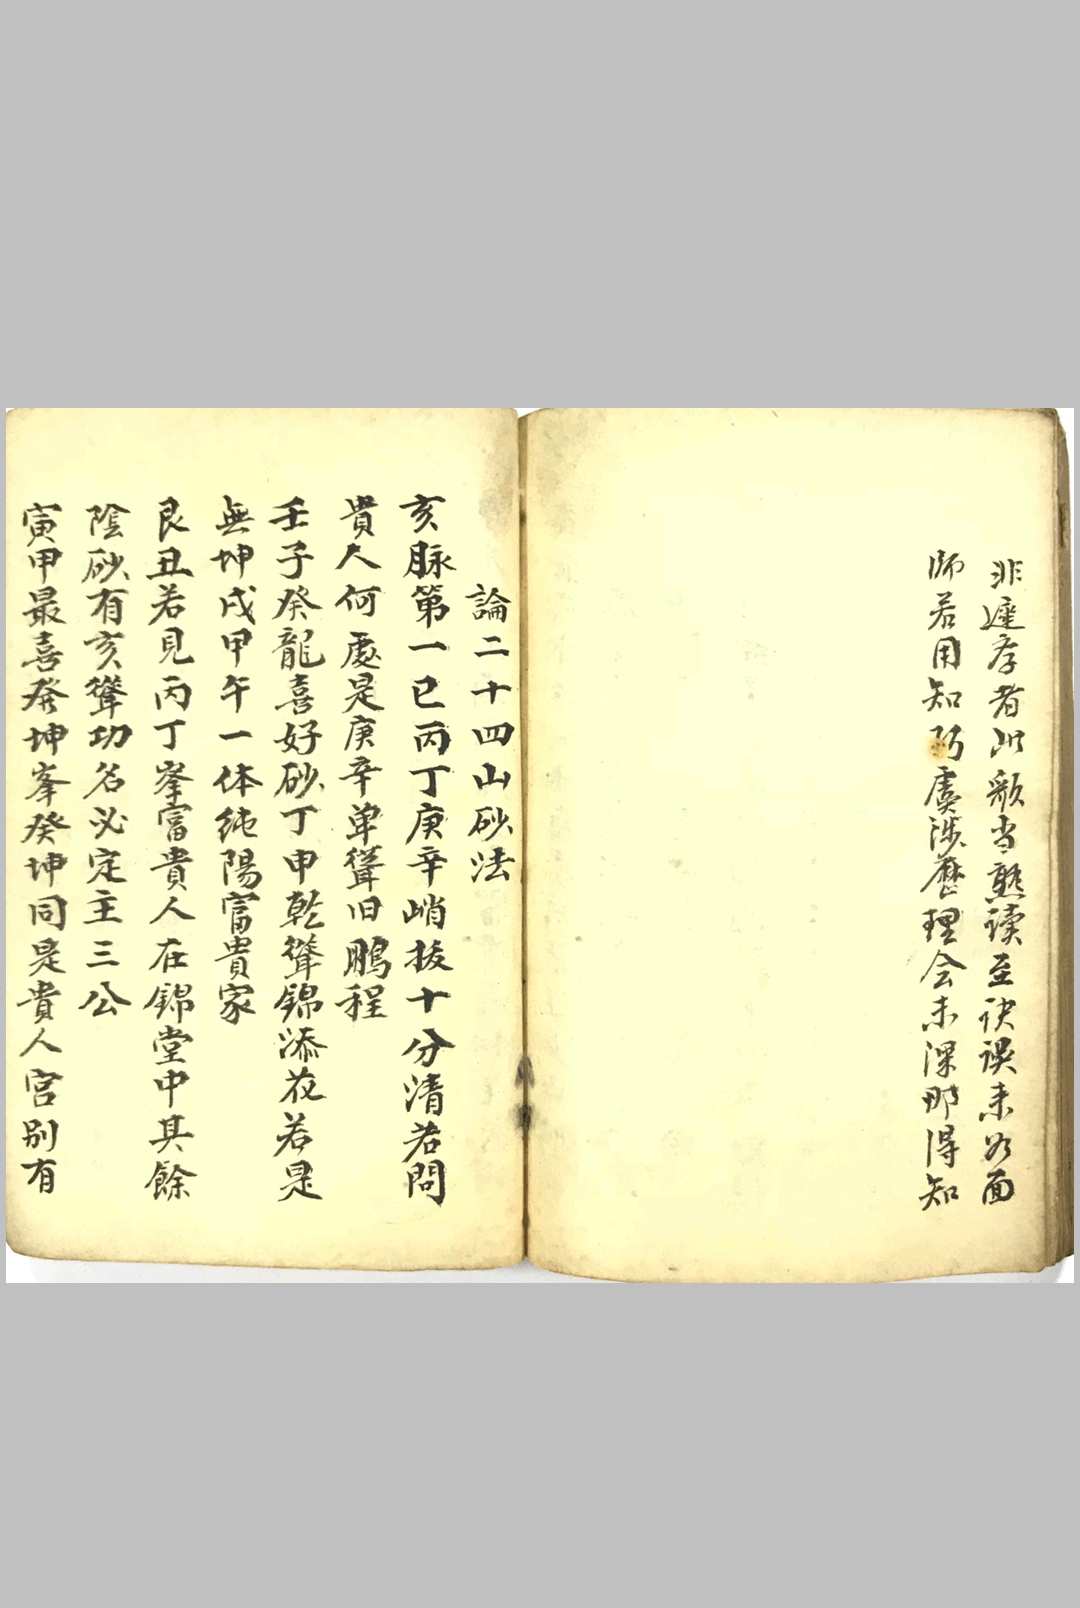 非遲存者此歌当熟读至诀误未必面
师若用知巧虞涉歷理会未深那得知
論二十四山砂法
亥脉第一巳丙丁庚辛峭拔十分清若問
貴人何處是庚辛单聳旧鵬程
壬子癸龍喜好砂丁申乾聳錦添花若是
無坤戌甲午一体純陽富貴家
艮丑若見丙丁峯富貴人在錦堂中其餘
陰砂有亥聳功名必定主三公
寅甲最喜癸坤峯癸坤同是貴人宮别有